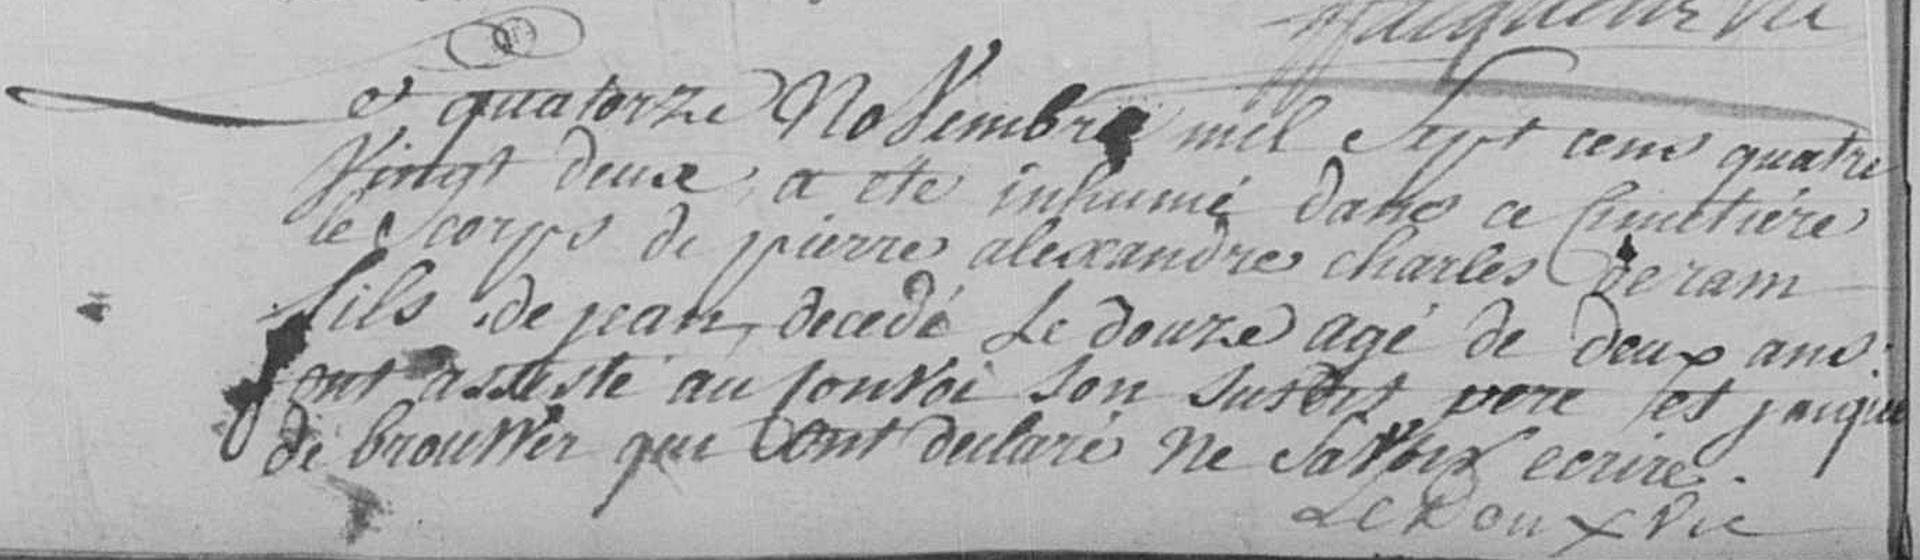 Le quatorze Novembre mil Sept cens quatre
Vingt deux, a eté inhumé dans ce Cimetiére
le corps de pierre alexandre charles Deram
fils de jean, decedé Le douze agé de deux ans.
ont assisté au Convoi son susdit pere et jaique
de brouWer qui ont declaré ne saVoir ecrire.
LeDoux Vic